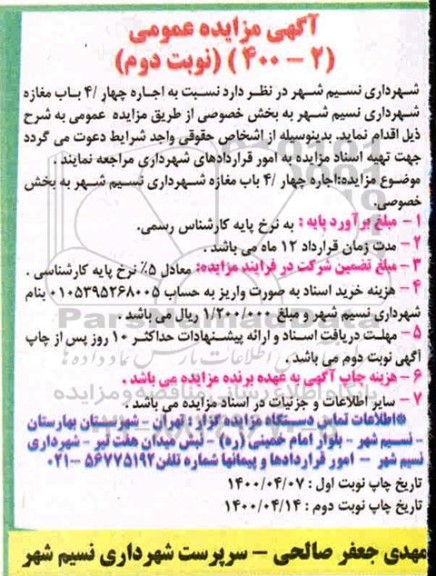 آگهی مزایده عمومی
(۲ - ۴۰۰) (نوبت دوم)
شهرداری نسیم شهر در نظر دارد نسبت به اجاره چهار /۴ باب مغازه
شهرداری نسیم شهر به بخش خصوصی از طریق مزایده عمومی به شرح
ذیل اقدام نماید. بدینوسیله از اشخاص حقوقی واجد شرایط دعوت می گردد
جهت تهیه اسناد مزایده به امور قراردادهای شهرداری مراجعه نمایند .
موضوع مزایده:اجاره چهار /۴ باب مغازه شهرداری نسیم شهر به بخش
خصوصی.
۱ - مبلغ برآورد پایه : به نرخ پایه کارشناس رسمی.
۲ - مدت زمان قرارداد ۱۲ ماه می باشد .
۳ - مبلغ تضمین شرکت در فرایند مزایده: معادل ۵٪ نرخ پایه کارشناسی .
۴ - هزینه خرید اسناد به صورت واریز به حساب ۰۱۰۵۳۹۵۲۶۸۰۰۵ بنام
شهرداری نسیم شهر و مبلغ ۱/۲۰۰/۰۰۰ ریال می باشد .
۵ - مهلت دریافت اسناد و ارائه پیشنهادات حداکثر ۱۰ روز پس از چاپ
آگهی نوبت دوم می باشد .
۶ - هزینه چاپ آگهی به عهده برنده مزایده می باشد .
۷ - سایر اطلاعات و جزئیات در اسناد مزایده می باشد .
*اطلاعات تماس دستگاه مزایده گزار : تهران - شهرستان بهارستان
- نسیم شهر - بلوار امام خمینی (ره) - نبش میدان هفت تیر - شهرداری
نسیم شهر - امور قراردادها و پیمانها شماره تلفن ۵۶۷۷۵۱۹۲-۰۲۱
تاریخ چاپ نوبت اول : ۱۴۰۰/۰۴/۰۷
تاریخ چاپ نوبت دوم : ۱۴۰۰/۰۴/۱۴
مهدی جعفر صالحی - سرپرست شهرداری نسیم شهر